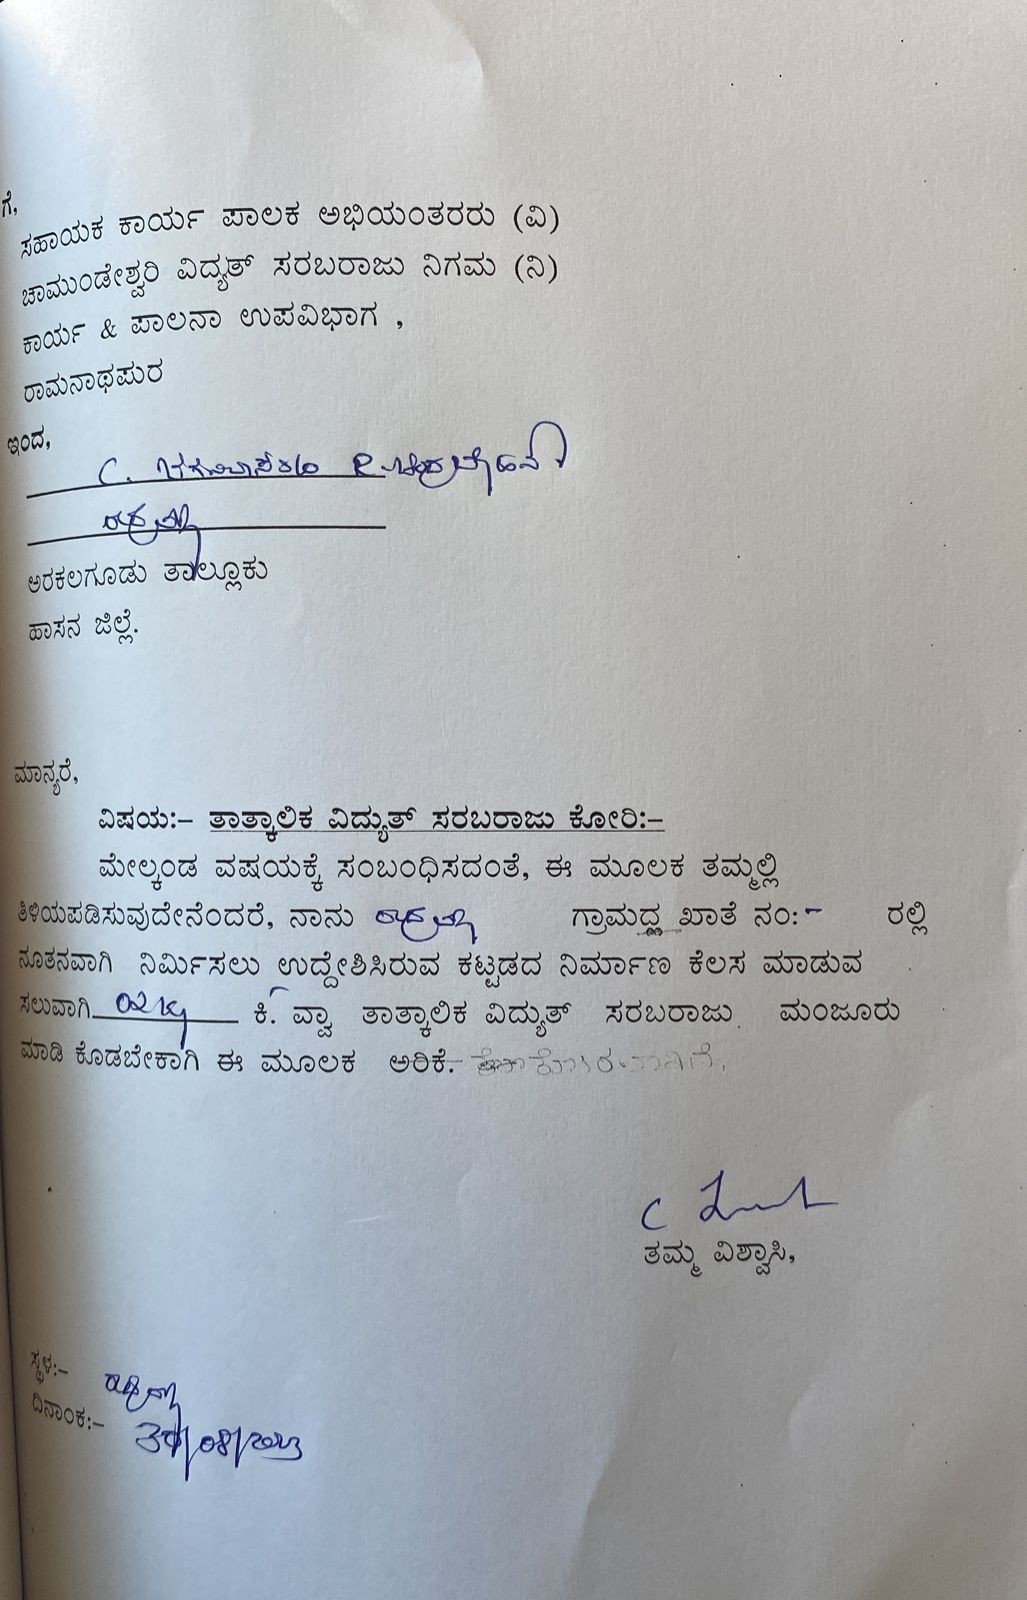 ಗೆ,
ಸಹಾಯಕ ಕಾರ್ಯ ಪಾಲಕ ಅಭಿಯಂತರರು (ವಿ)
ಚಾಮುಂಡೇಶ್ವರಿ ವಿದ್ಯತ್ ಸರಬರಾಜು ನಿಗಮ (ನಿ)
ಕಾರ್ಯ & ಪಾಲನಾ ಉಪವಿಭಾಗ ,
ರಾಮನಾಥಪುರ
ಇಂದ,
C.
ಅರಕಲಗೂಡು ತಾಲ್ಲೂಕು
ಹಾಸನ ಜಿಲ್ಲೆ.
ಮಾನ್ಯರೆ,
ವಿಷಯ:– ತಾತ್ಕಾಲಿಕ ವಿದ್ಯುತ್ ಸರಬರಾಜು ಕೋರಿ:–
ಮೇಲ್ಕಂಡ ವಷಯಕ್ಕೆ ಸಂಬಂಧಿಸದಂತೆ, ಈ ಮೂಲಕ ತಮ್ಮಲ್ಲಿ
ತಿಳಿಯಪಡಿಸುವುದೇನೆಂದರೆ, ನಾನು ಗ್ರಾಮದ್ಲ ಖಾತೆ ನಂ:- ರಲ್ಲಿ
ನೂತನವಾಗಿ ನಿರ್ಮಿಸಲು ಉದ್ದೇಶಿಸಿರುವ ಕಟ್ಟಡದ ನಿರ್ಮಾಣ ಕೆಲಸ ಮಾಡುವ
ಸಲುವಾಗಿ ಕಿ. ವ್ಯಾ ತಾತ್ಕಾಲಿಕ ವಿದ್ಯುತ್ ಸರಬರಾಜು ಮಂಜೂರು
ಮಾಡಿ ಕೊಡಬೇಕಾಗಿ ಈ ಮೂಲಕ ಅರಿಕೆ.
ತಮ್ಮ ವಿಶ್ವಾಸಿ,
ಸ್ಥಳ:–
ದಿನಾಂಕ:– 30/08/2023